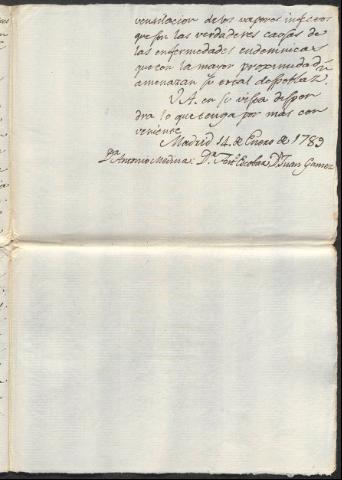 venttilacion de los vapores infectos
que son las verdaderas causas de
las enfermedades endemicas
que con la mayor
amenazan su total
V.A. en su vista dispon
dra lo que tenga por mas con
veniente
Madrid 14 de Enero de 1789
Dn Antonio Medina: Dn Escolar Dn Juan Gamez